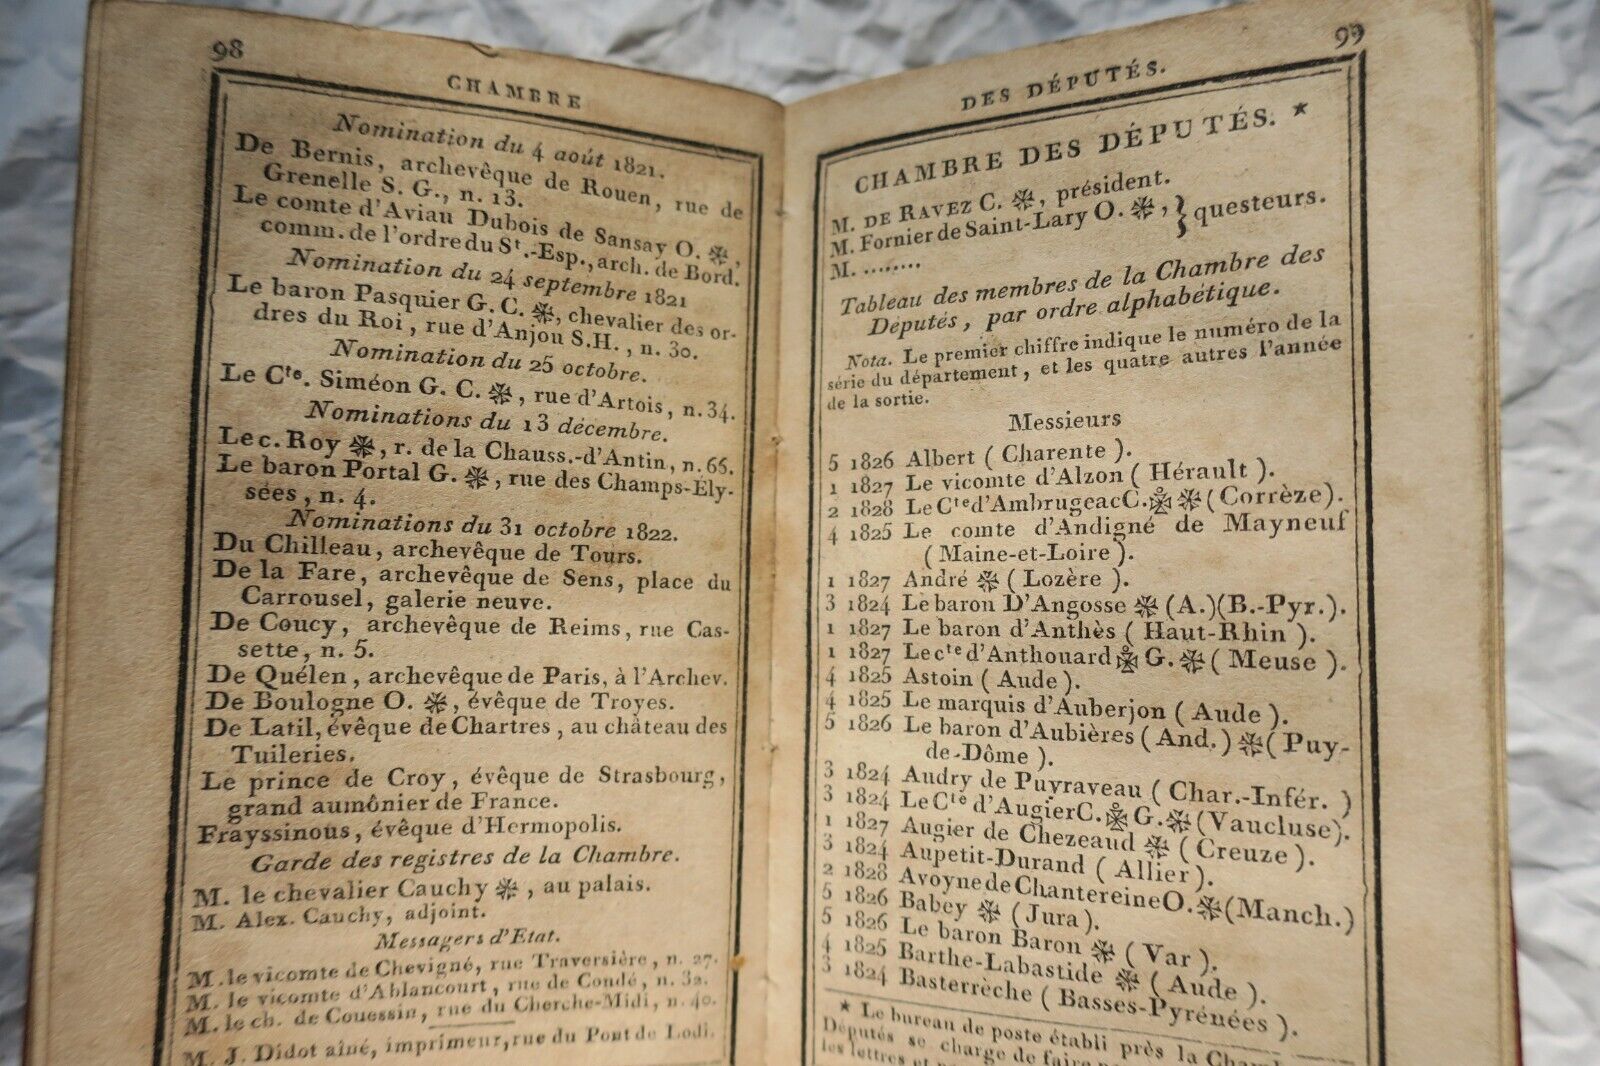 98
CHAMBRE
Nomination du 4 août 1821.
De Bernis, archevêque de Rouen, rue de
Grenelle S. G., n. 13.
Le comte d'Aviau Dubois de Sansay O. ❋,
comm. de l'ordre du St.-Esp., arch. de Bord.
Nomination du 24 septembre 1821
Le baron Pasquier G. C. ❋, chevalier des or-
dres du Roi, rue d'Anjou S.H., n. 30.
Nomination du 25 octobre.
Le Cte. Siméon G. C. ❋, rue d'Artois, n. 34.
Nominations du 13 décembre.
Le c. Roy ❋, r. de la Chauss.-d'Antin, n. 66.
Le baron Portal G. ❋, rue des Champs-Ély-
sées, n. 4.
Nominations du 31 octobre 1822.
Du Chilleau, archevêque de Tours.
De la Fare, archevêque de Sens, place du
Carrousel, galerie neuve.
De Coucy, archevêque de Reims, rue Cas-
sette, n. 5.
De Quélen, archevêque de Paris, à l'Archev.
De Boulogne O. ❋, évêque de Troyes.
De Latil, évêque de Chartres, au château des
Tuileries.
Le prince de Croy, évêque de Strasbourg,
grand aumônier de France.
Frayssinous, évêque d'Hermopolis.
Garde des registres de la Chambre.
M. le chevalier Cauchy ❋, au palais.
M. Alex. Cauchy, adjoint.
Messagers d'Etat.
M. le vicomte de Chevigné, rue Traversière, n. 27.
M. le vicomte d'Ablancourt, rue de Condé, n. 32.
M. le ch. de Couessin, rue du Cherche-Midi, n. 40.
M. J. Didot aîné, imprimeur, rue du Pont de Lodi.
99
DES DÉPUTÉS.
CHAMBRE DES DÉPUTÉS. *
M. DE RAVEZ C. ❋, président.
M. Fornier de Saint-Lary O. ❋, } questeurs.
M. ........
Tableau des membres de la Chambre des
Députés, par ordre alphabétique.
Nota. Le premier chiffre indique le numéro de la
série du département, et les quatre autres l'année
de la sortie.
Messieurs
5 1826 Albert ( Charente ).
1 1827 Le vicomte d'Alzon ( Hérault ).
2 1828 Le Cte d'Ambrugeac C. ❋ ❋ ( Corrèze).
4 1825 Le comte d'Andigné de Mayneuf
( Maine-et-Loire ).
1 1827 André ❋ ( Lozère ).
3 1824 Le baron D'Angosse ❋ (A.)(B.-Pyr.).
1 1827 Le baron d'Anthès ( Haut-Rhin ).
1 1827 Le cte d'Anthouard ❋ G. ❋ ( Meuse ).
4 1825 Astoin ( Aude ).
4 1825 Le marquis d'Auberjon ( Aude ).
5 1826 Le baron d'Aubières ( And.) ❋ ( Puy-
de-Dôme ).
3 1824 Audry de Puyraveau ( Char.-Infér. )
3 1824 Le Cte d'Augier C. ❋ G. ❋ (Vaucluse).
1 1827 Augier de Chezeaud ❋ ( Creuze ).
3 1824 Aupetit-Durand ( Allier ).
2 1828 Avoyne de Chantereine O. ❋ (Manch.)
5 1826 Babey ❋ ( Jura ).
5 1826 Le baron Baron ❋ ( Var ).
4 1825 Barthe-Labastide ❋ ( Aude ).
3 1824 Basterrèche ( Basses-Pyrénées ).
* Le bureau de poste établi près la Cham
Députés se charge de faire
les lettres et